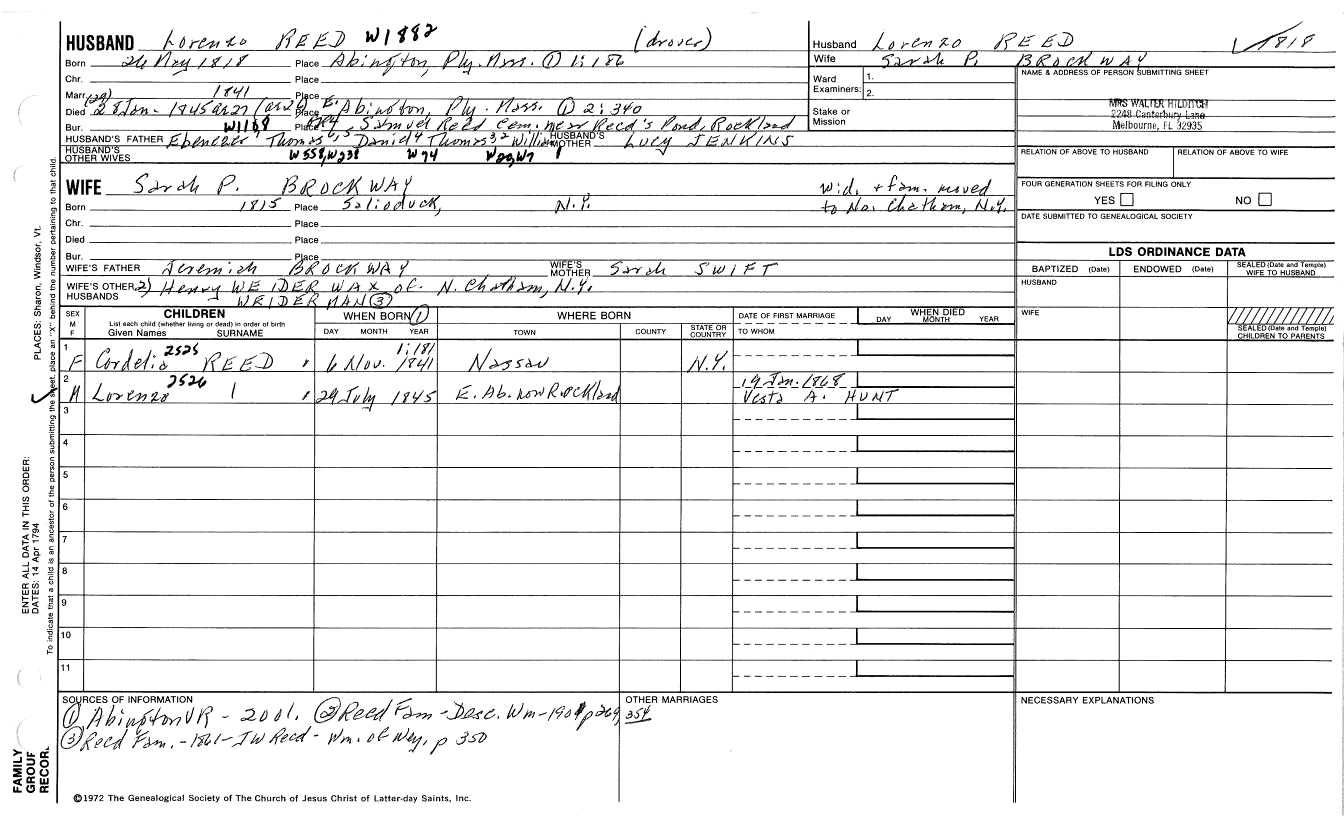 HUSBAND Lorenzo REED W1882 (drover)
Born 26 May 1818 Place Abington, Ply. Mass. ① 1:186
Chr. Place
Marr. 1841 Place
Died (29) 28 Jan. 1845 Place E. Abington, Ply. Mass. ① 2:340
Bur. W1169 Place Samuel Reed Cem. near Reed's Pond, Rockland
HUSBAND'S FATHER Ebenezer Thomas Daniel Thomas William HUSBAND'S MOTHER Lucy JENKINS
HUSBAND'S OTHER WIVES W558, W238 W74 W20, W7
WIFE Sarah P. BROCKWAY wid. + fam. moved
Born 1815 Place N.Y. to No. Chatham, N.Y.
Chr. Place
Died Place
Bur. Place
WIFE'S FATHER Jeremiah BROCKWAY WIFE'S MOTHER Sarah SWIFT
WIFE'S OTHER HUSBANDS 2) Henry WEIDERWAX of N. Chatham, N.Y.
WEIDERMAN ③
Husband Lorenzo REED 1818
Wife Sarah P. BROCKWAY
Ward Examiners: 1.
2.
Stake or Mission
NAME & ADDRESS OF PERSON SUBMITTING SHEET
MRS WALTER HILDITCH
2248 Canterbury Lane
Melbourne, FL 32935
RELATION OF ABOVE TO HUSBAND RELATION OF ABOVE TO WIFE
FOUR GENERATION SHEETS FOR FILING ONLY
YES NO
DATE SUBMITTED TO GENEALOGICAL SOCIETY
LDS ORDINANCE DATA
BAPTIZED (Date) ENDOWED (Date) SEALED (Date and Temple) WIFE TO HUSBAND
HUSBAND
WIFE
SEALED (Date and Temple) CHILDREN TO PARENTS
SEX M F CHILDREN WHEN BORN ① WHERE BORN DATE OF FIRST MARRIAGE WHEN DIED
List each child (whether living or dead) in order of birth
Given Names SURNAME DAY MONTH YEAR TOWN COUNTY STATE OR COUNTRY TO WHOM DAY MONTH YEAR
1 2525 1:181
F Cordelia REED 6 Nov. 1841 Nassau N.Y.
2 2526 19 Jan. 1868
M Lorenzo 29 July 1845 E. Ab. now Rockland Vesta A. HUNT
3
4
5
6
7
8
9
10
11
SOURCES OF INFORMATION OTHER MARRIAGES NECESSARY EXPLANATIONS
① Abington VR - 2001. ② Reed Fam - Desc. Wm - 1901 p 269, 354
③ Reed Fam. - 1861 - JW Reed - Wm. of Wey, p 350
©1972 The Genealogical Society of The Church of Jesus Christ of Latter-day Saints, Inc.
PLACES: Sharon, Windsor, Vt.
ENTER ALL DATA IN THIS ORDER:
DATES: 14 Apr 1794
To indicate that a child is an ancestor of the person submitting the sheet, place an "X" behind the number pertaining to that child.
FAMILY
GROUP
RECOR